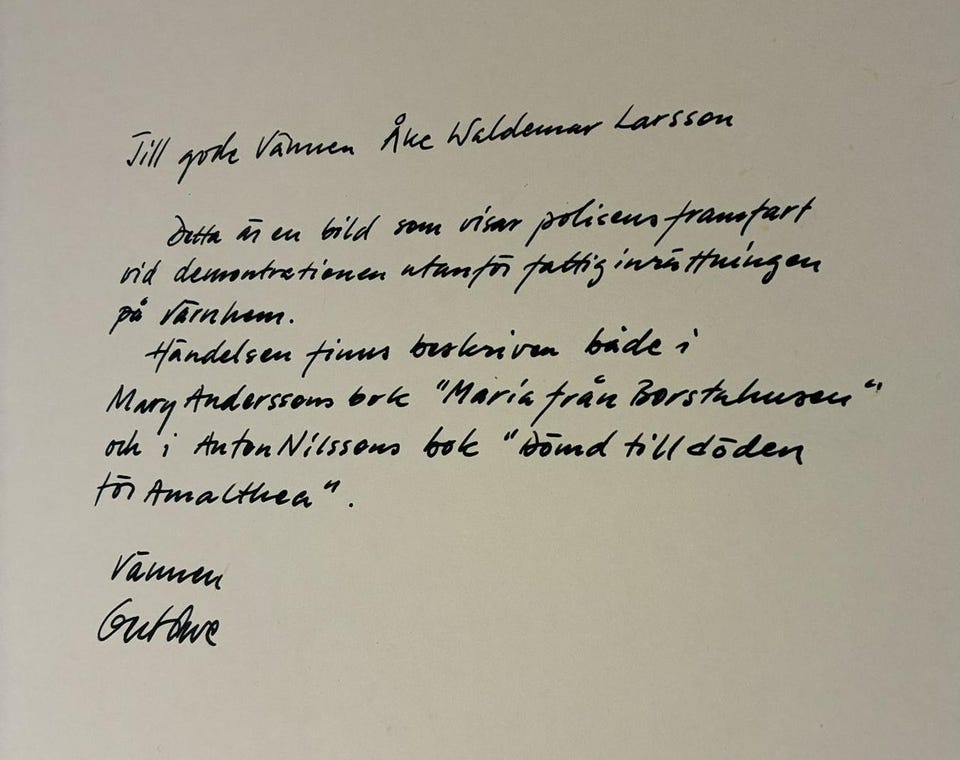 Till gode Vännen Åke Waldemar Larsson
Detta är en bild som visar polisens framfart
vid demontrationen utanför fattiginrättningen
på Värnhem.
Händelsen finns beskriven både i
Mary Anderssons bok "Maria från Borstahusen"
och i Anton Nilssons bok "Dömd till döden
för Amalthea".
Vännen